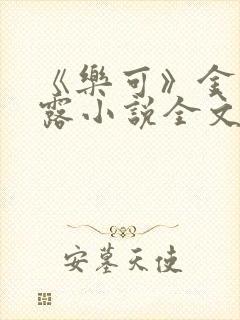 《樂可》金
露小說全文
安墓天使